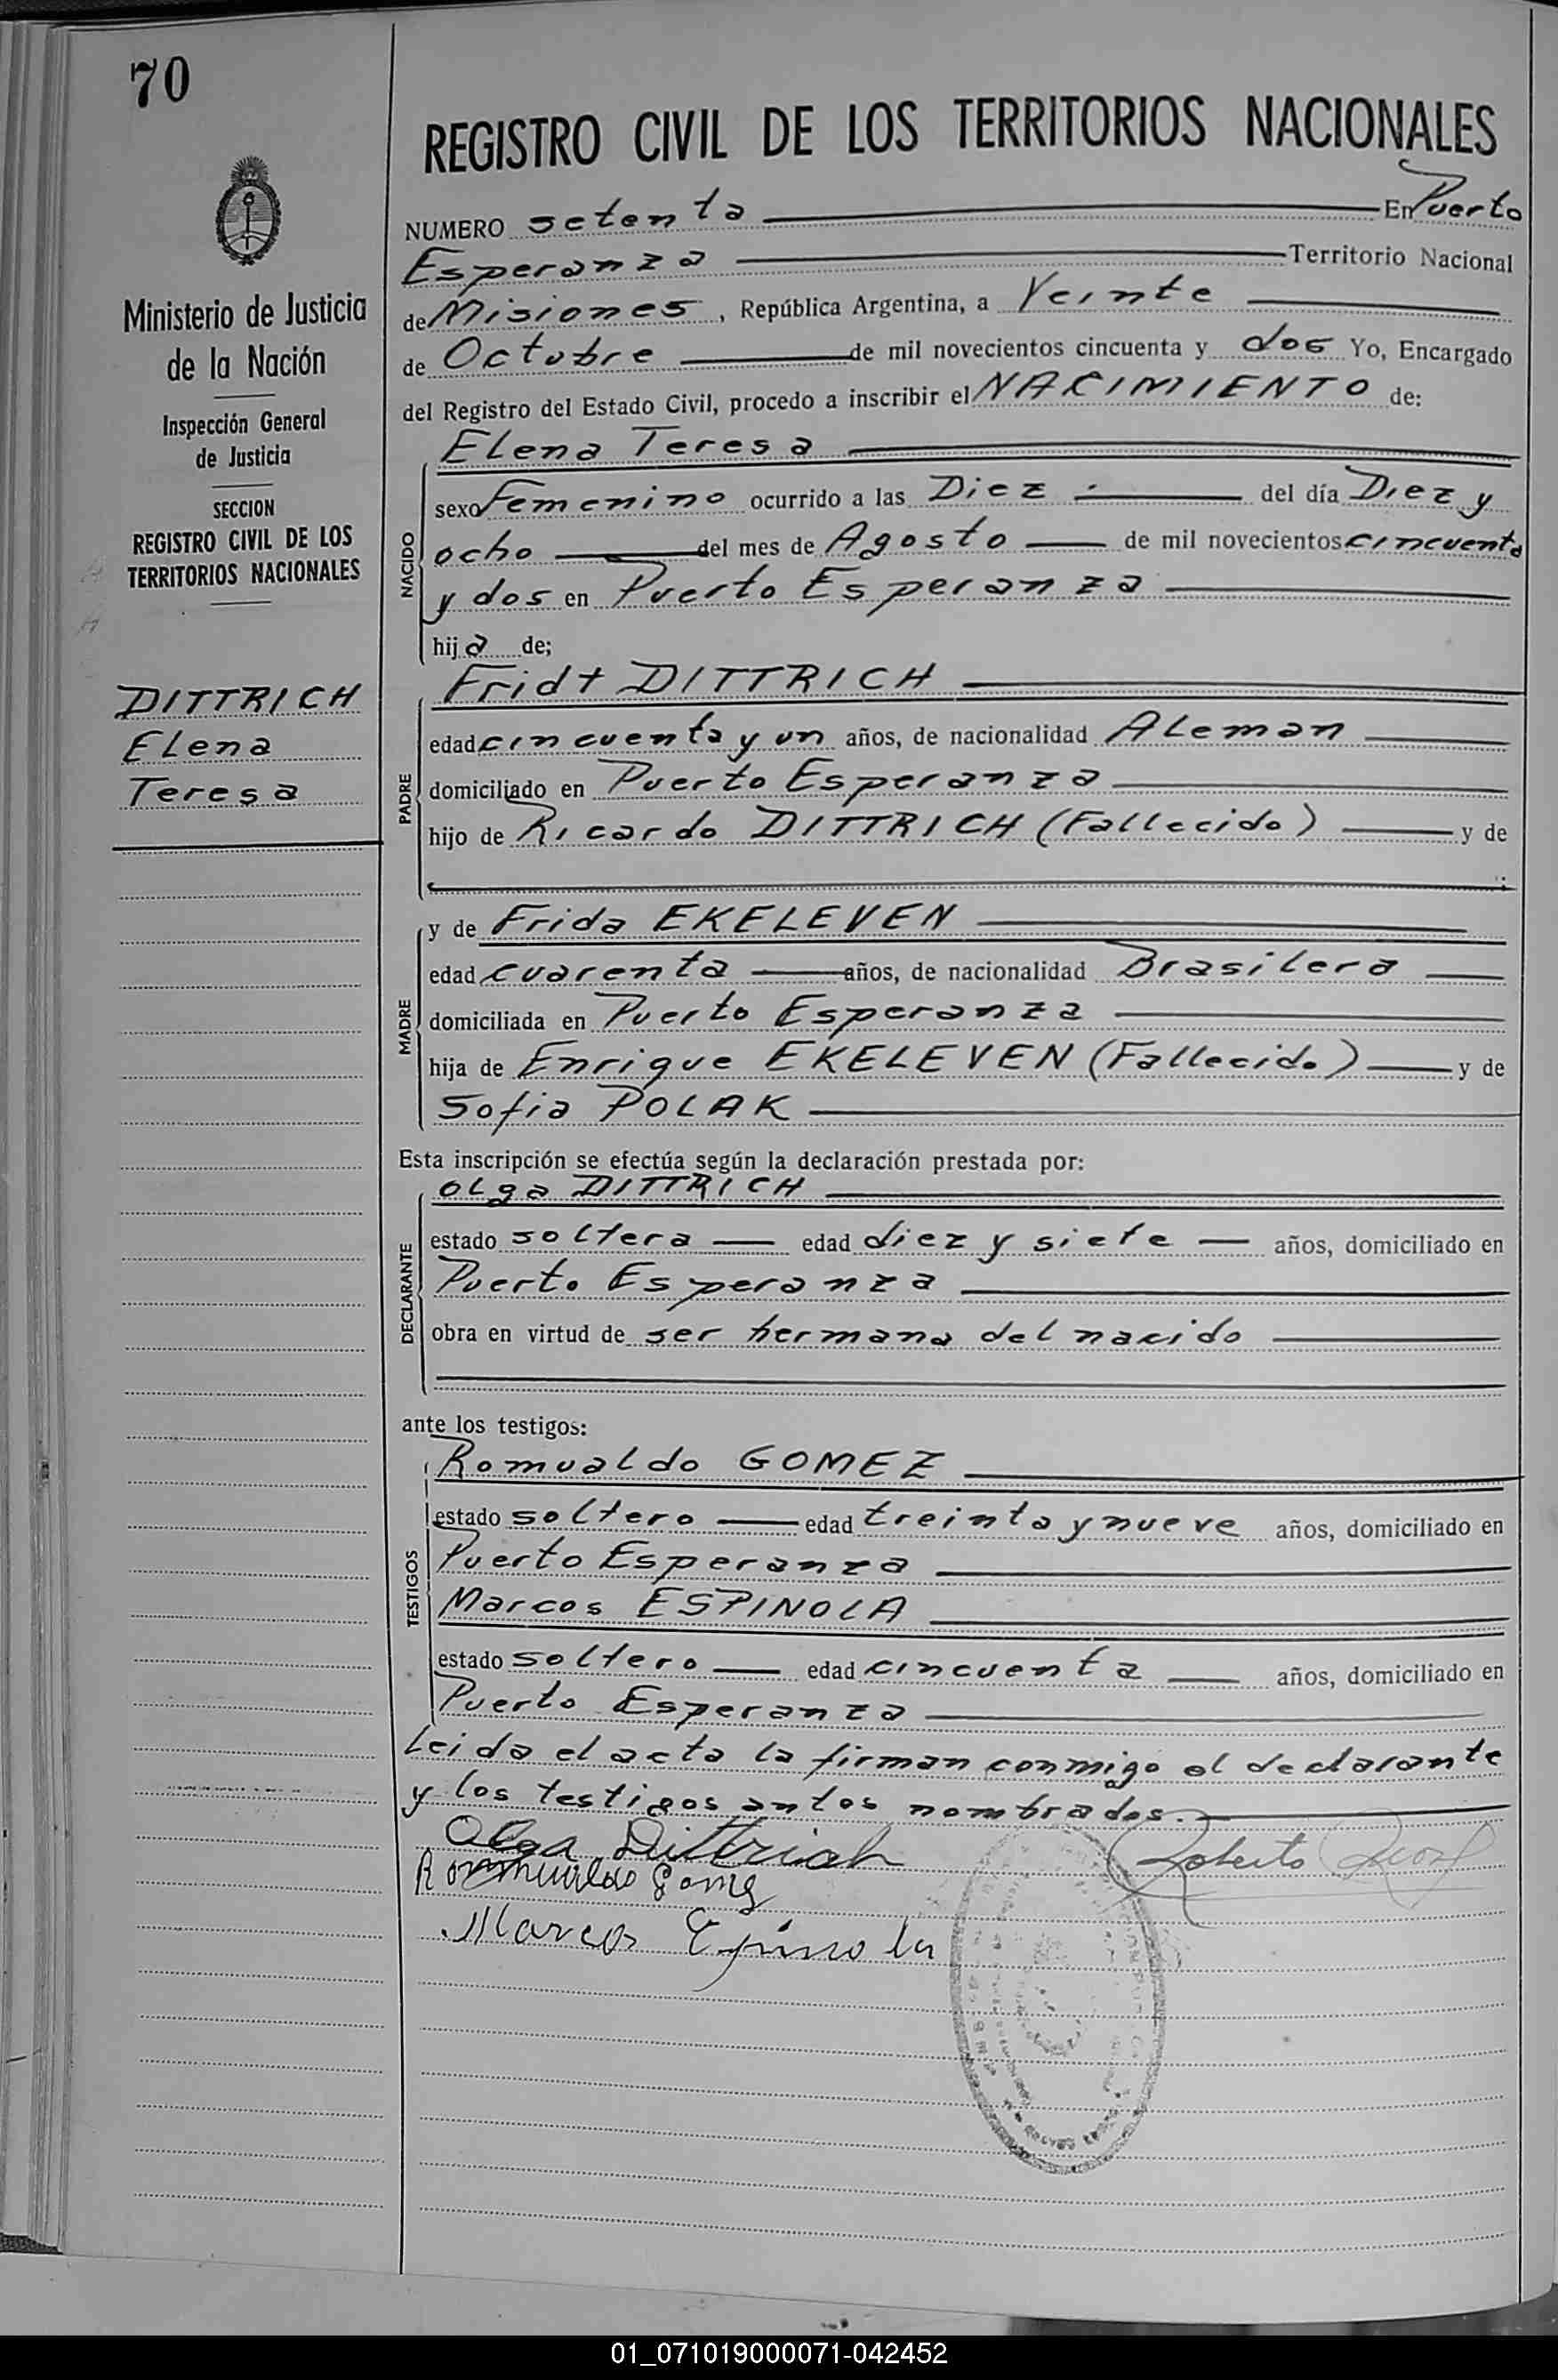 70
REGISTRO CIVIL DE LOS TERRITORIOS NACIONALES
Ministerio de Justicia
de la Nación
Inspección General
de Justicia
SECCION
REGISTRO CIVIL DE LOS
TERRITORIOS NACIONALES
DITTRICH
Elena
Teresa
NUMERO setenta En Puerto
Esperanza Territorio Nacional
de Misiones, República Argentina, a Veinte
de Octubre de mil novecientos cincuenta y dos Yo, Encargado
del Registro del Estado Civil, procedo a inscribir el NACIMIENTO de:
Elena Teresa
NACIDO
sexo Femenino ocurrido a las Diez del día Diez y
ocho del mes de Agosto de mil novecientos cincuenta
y dos en Puerto Esperanza
hija de;
Fridt DITTRICH
PADRE
edad cincuenta y un años, de nacionalidad Aleman
domiciliado en Puerto Esperanza
hijo de Ricardo DITTRICH (Fallecido) y de
y de Frida EKELEVEN
MADRE
edad cuarenta años, de nacionalidad Brasilera
domiciliada en Puerto Esperanza
hija de Enrique EKELEVEN (Fallecido) y de
Sofia POLAK
Esta inscripción se efectúa según la declaración prestada por:
Olga DITTRICH
DECLARANTE
estado soltera edad diez y siete años, domiciliado en
Puerto Esperanza
obra en virtud de ser hermana del nacido
ante los testigos:
Romualdo GOMEZ
TESTIGOS
estado soltero edad treinta y nueve años, domiciliado en
Puerto Esperanza
Marcos ESPINOLA
estado soltero edad cincuenta años, domiciliado en
Puerto Esperanza
Leida el acta la firman conmigo el declarante
y los testigos antes nombrados.
Olga Dittrich Roberto
Romualdo Gomez
Marcos Espinola
01_071019000071-042452